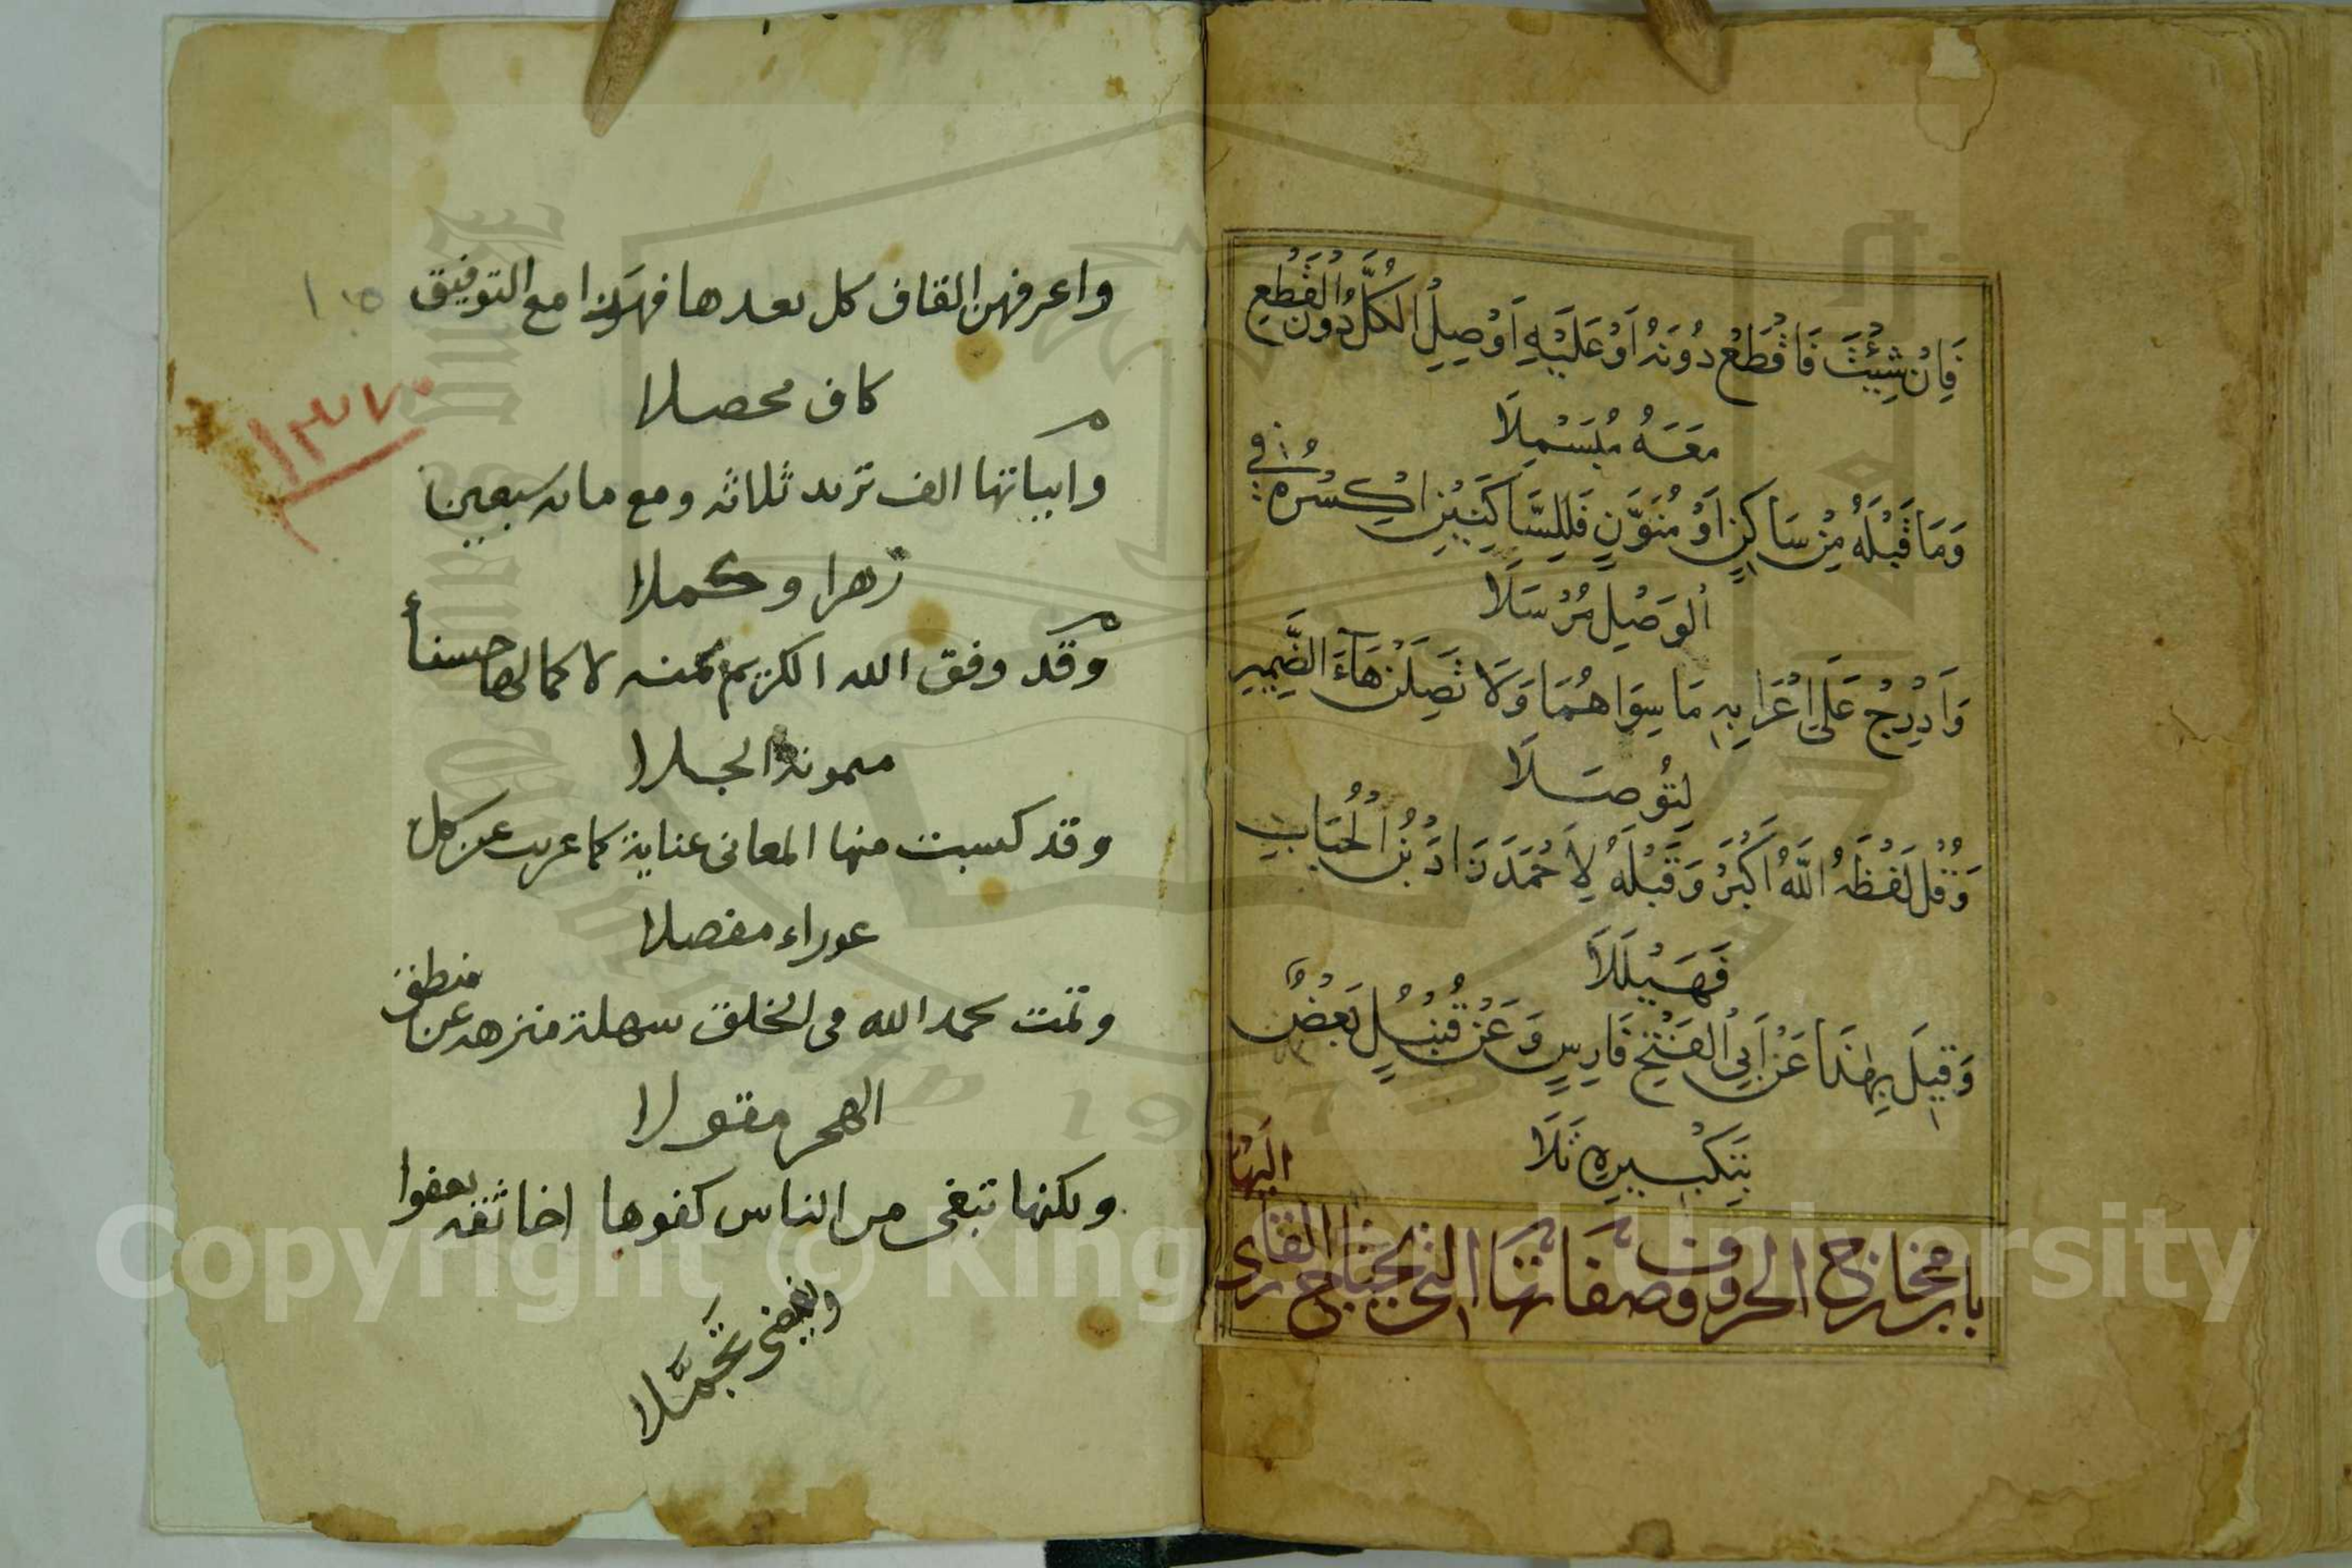 فَاِنْ شِئْتَ فَاقْطَعْ دُونَهُ اَوْ عَلَيْهِ اَوْ صِلِ الْكُلَّ دُونَ الْقَطْعِ
مَعَهُ مُبَسْمِلَا
وَمَا قَبْلَهُ مِنْ سَاكِنٍ اَوْ مُنَوَّنٍ فَلِلسَّاكِنَيْنِ اكْسِرْهُ فِي
الوَصْلِ مُرْسَلَا
وَاَدْرِجْ عَلَى اِعْرَابِهِ مَا سِوَاهُمَا وَلَا تَصِلَنْ هَاءَ الضَّمِيرِ
لِتُوصَلَا
وَقُلْ لَفْظُهُ اللَّهُ اَكْبَرُ وَقَبْلَهُ لِاَحْمَدَ زَادَ بْنُ الْحُبَابِ
فَهَيْلَلَا
وَقِيلَ بِهٰذَا عَنْ اَبِي الْفَتْحِ فَارِسٍ وَعَنْ قُنْبُلٍ بَعْضٌ
بِتَكْبِيرِهِ تَلَا
باب مخارج الحروف وصفاتها التي يحتاج القارى
اليها
واعرفهن القاف كل بعدها فهون مع التوفيق
كاف محصلا
وابياتها الف تزيد ثلاثه ومع مايه سبعين
زهرا وكملا
وقد وفق الله الكريم بمنه لاكمالها حسنأ
ميمونة الجلا
وقد كسبت منها المعانى عناية كما عريت عن كل
عوراء مفصلا
وتمت بحمد الله في الخلق سهلة منزهه عن منطق
الهجر مقولا
ولكنها تبغى من الناس كفوها اخا ثقه يعفوا
ويغضى تجمَّلا
١٣٧٠
١٠٥
Copyright © King Saud University
1957